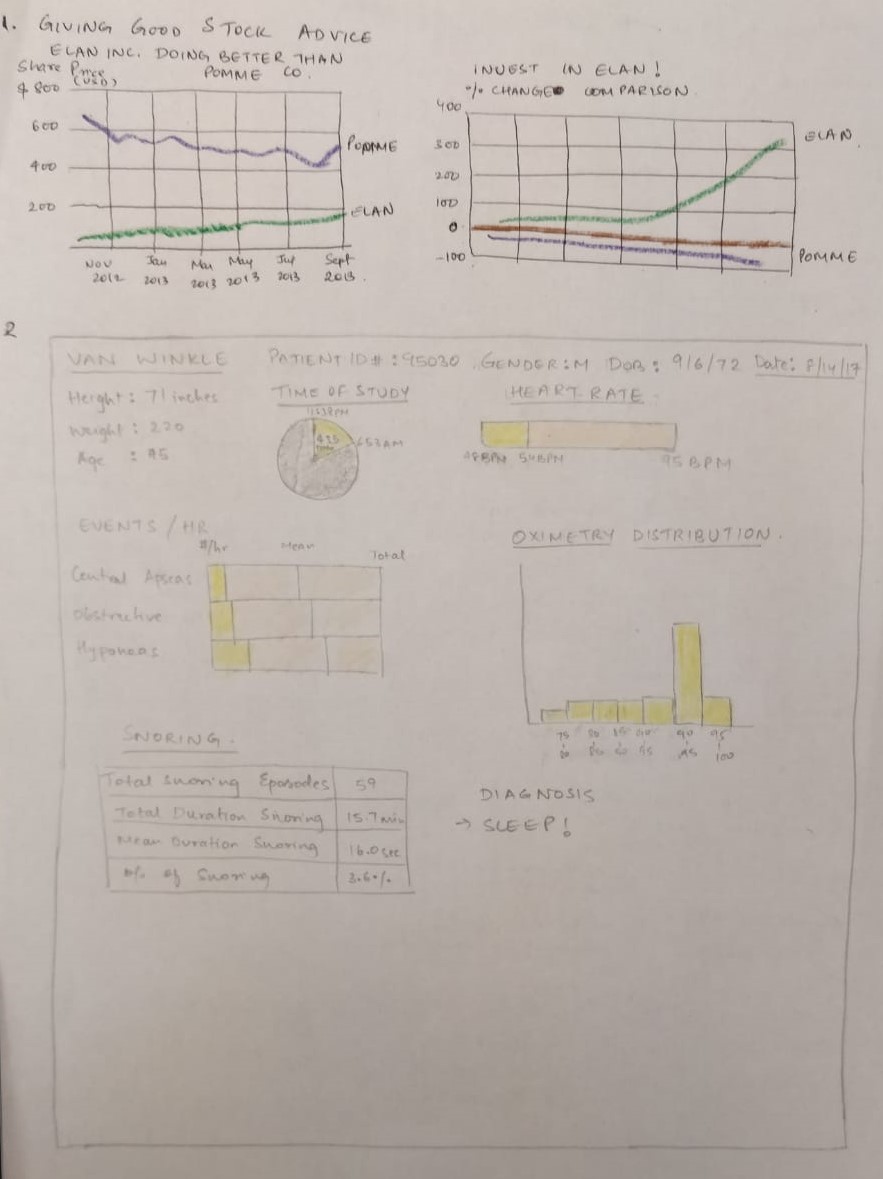 1. GIVING GOOD STOCK ADVICE
ELAN INC. DOING BETTER THAN
POMME CO.
Share Price
(USD)
$ 800
600
400
200
POMME
ELAN
Nov
2012
Jan
2013
Mar
2013
May
2013
Jul
2013
Sept
2013.
INVEST IN ELAN!
% CHANGE COMPARISON
400
300
200
100
0
-100
ELAN
POMME
2
VAN WINKLE PATIENT ID# : 95030 GENDER : M DOB : 9/6/72 Date: 8/14/17
Height : 71 inches
Weight : 220
Age : 45
TIME OF STUDY
HEART RATE
48BPM 54BPM 95 BPM
EVENTS / HR
#/hr Mean Total
Central Apneas
Obstructive
Hyponeas
OXIMETRY DISTRIBUTION.
75
80
85
90
95
95
100
SNORING.
Total Snoring Episodes 59
Total Duration Snoring 15.7 min
Mean Duration Snoring 16.0 sec
% of Snoring 3.6%
DIAGNOSIS
→ SLEEP!